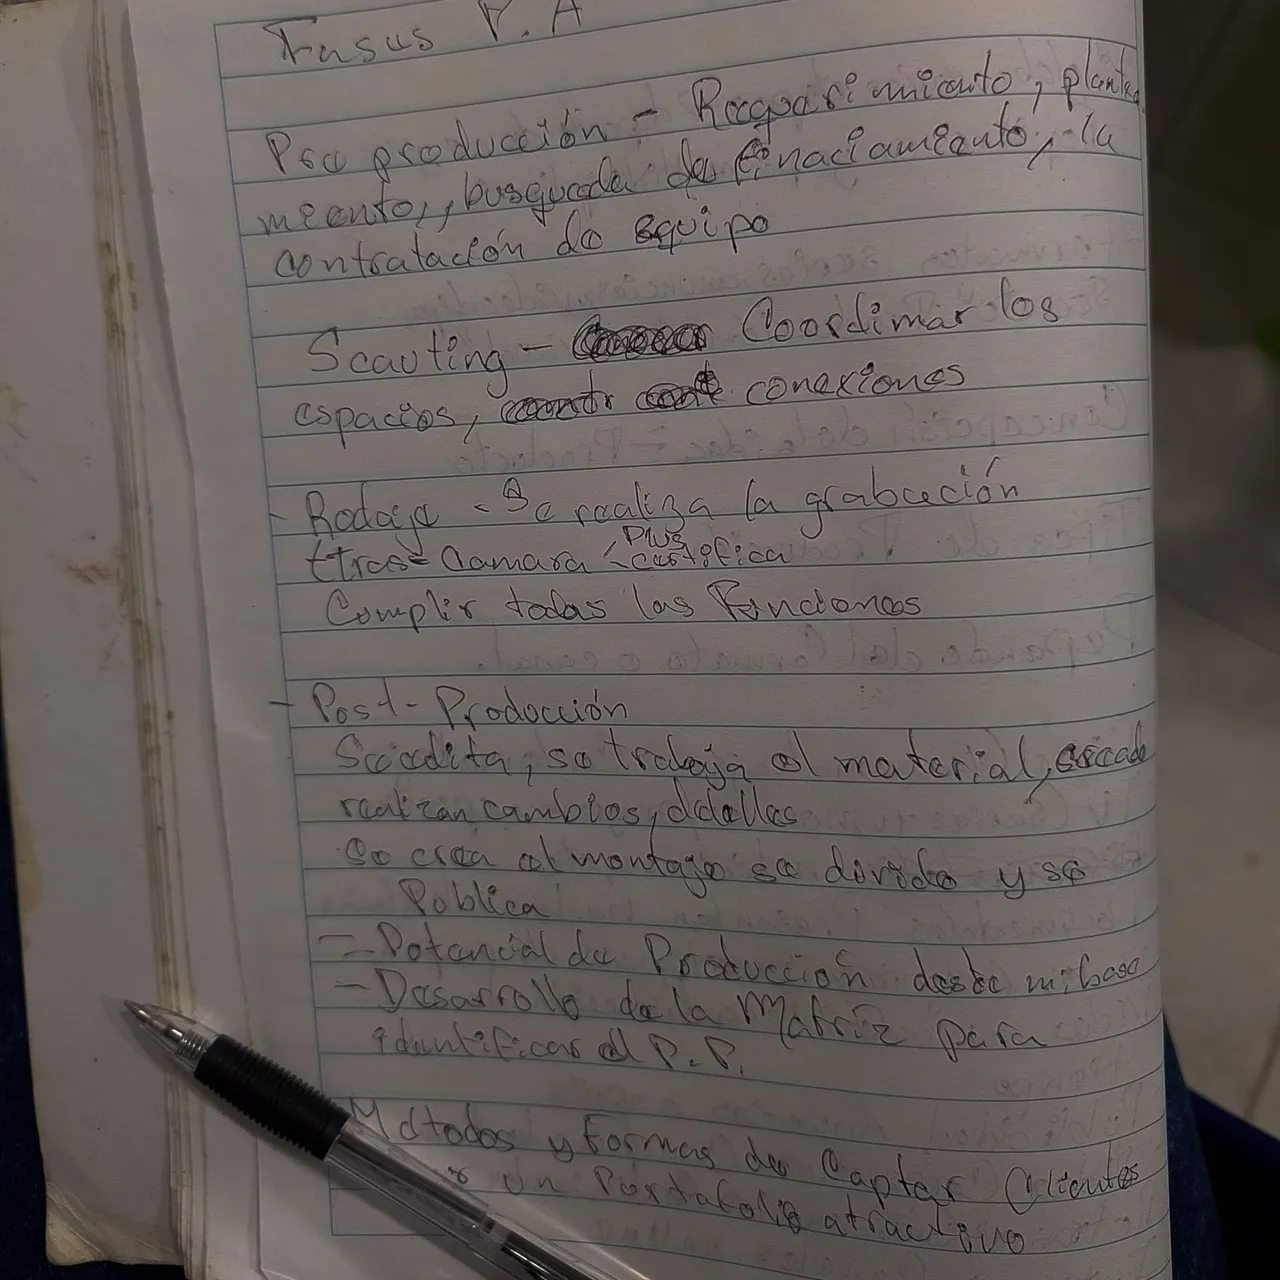 Fasus P. A
Pre producción - Requerimiento, plantea
miento,, busqueda de finaciamiento, la
contratación de equipo
Scauting - Coordimar los
espacios, conexiones
- Rodaje - Se realiza la grabación
tras= Camara
plus
Complir todas las Funciones
- Post-Producción
Se edita, se trabaja el material,
realizan cambios, detalles
Se crea el montaje se divide y se
Poblica
= Potencial de Producción desde mi base
- Desarrollo de la Matriz para
identificar el P.P.
Métodos y formas de Captar Clientes
un Portafolio atractivo